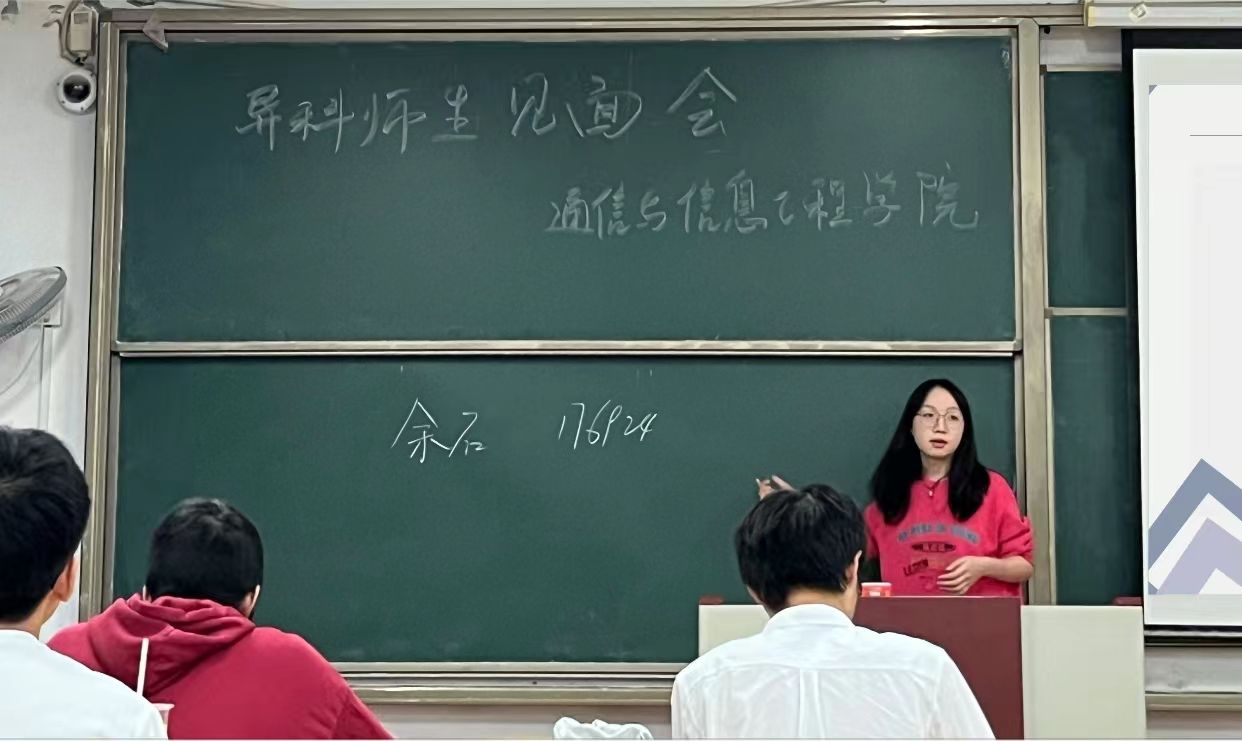 异科师生见面会
通信与信息工程学院
余石 176924